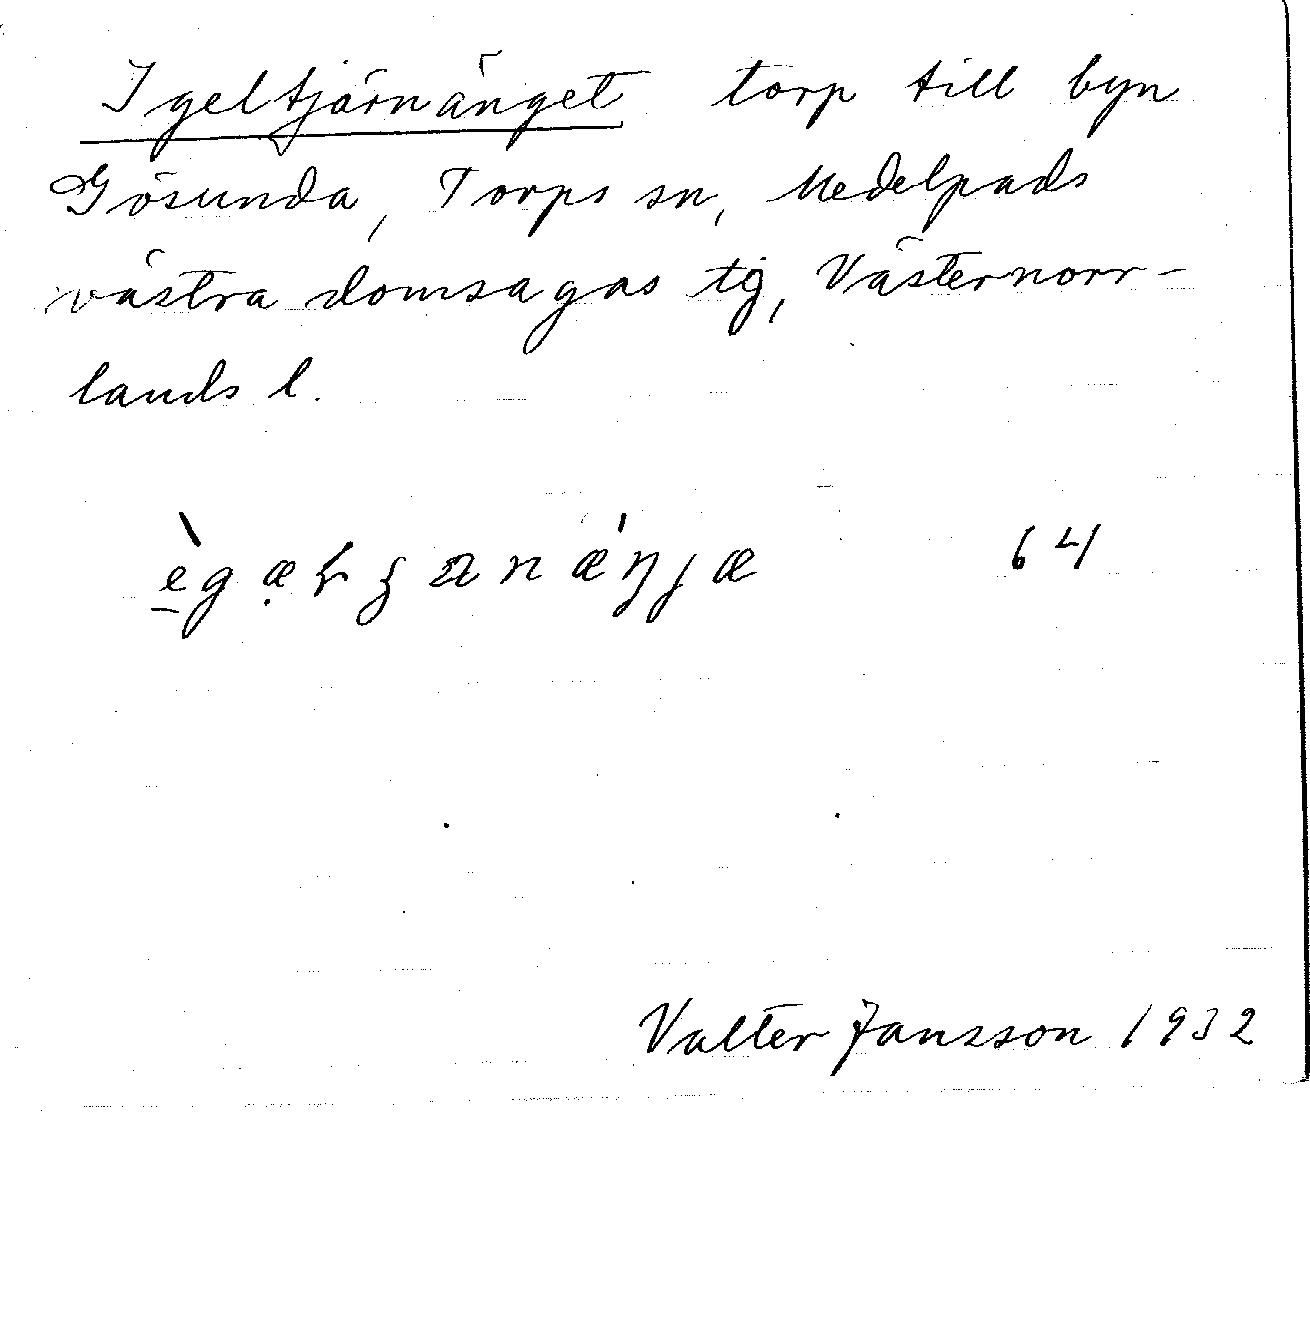 Igeltjärnänget torp till byn
Gösunda, Torps sn, Medelpads
västra domsagas tg, Västernorr-
lands l.
64
Valter Jansson 1932